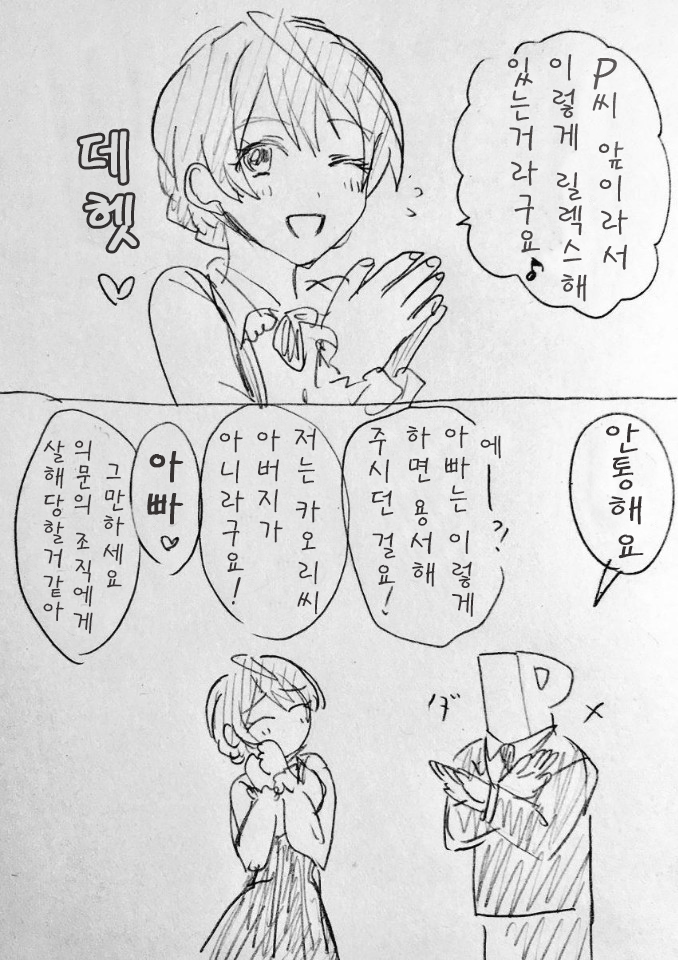 P씨 앞이라서
이렇게 릴렉스해
있는거라구요♪
데헷
♡
안통해요
에ー?
아빠는 이렇게
하면 용서해
주시던 걸요!
저는 카오리씨
아버지가
아니라구요!
아빠♡
그만하세요
의문의 조직에게
살해당할거같아
P
×